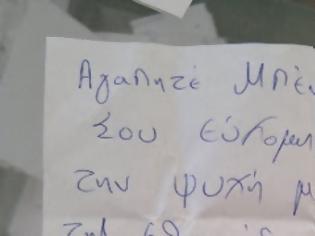 Αγαπητέ Μπέν
Σου εύχομαι
την ψυχή μ